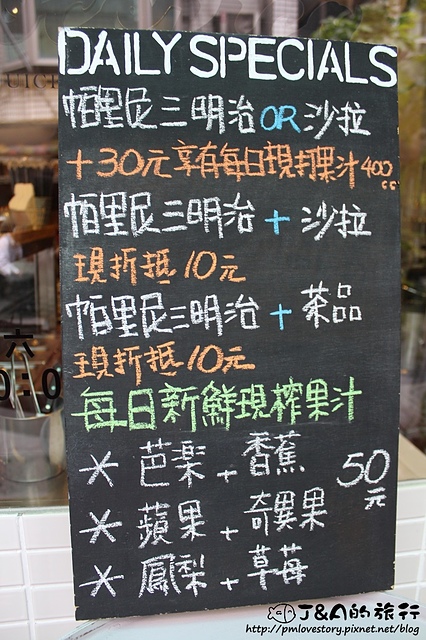 DAILY SPECIALS
帕里尼三明治OR沙拉
+30元享有每日現打果汁400cc
帕里尼三明治+沙拉
現折抵10元
帕里尼三明治+茶品
現折抵10元
每日新鮮現榨果汁
* 芭樂+香蕉 50元
* 蘋果+奇異果
* 鳳梨+草莓
J&A的旅行
http://pmlovestory.pixnet.net/blog